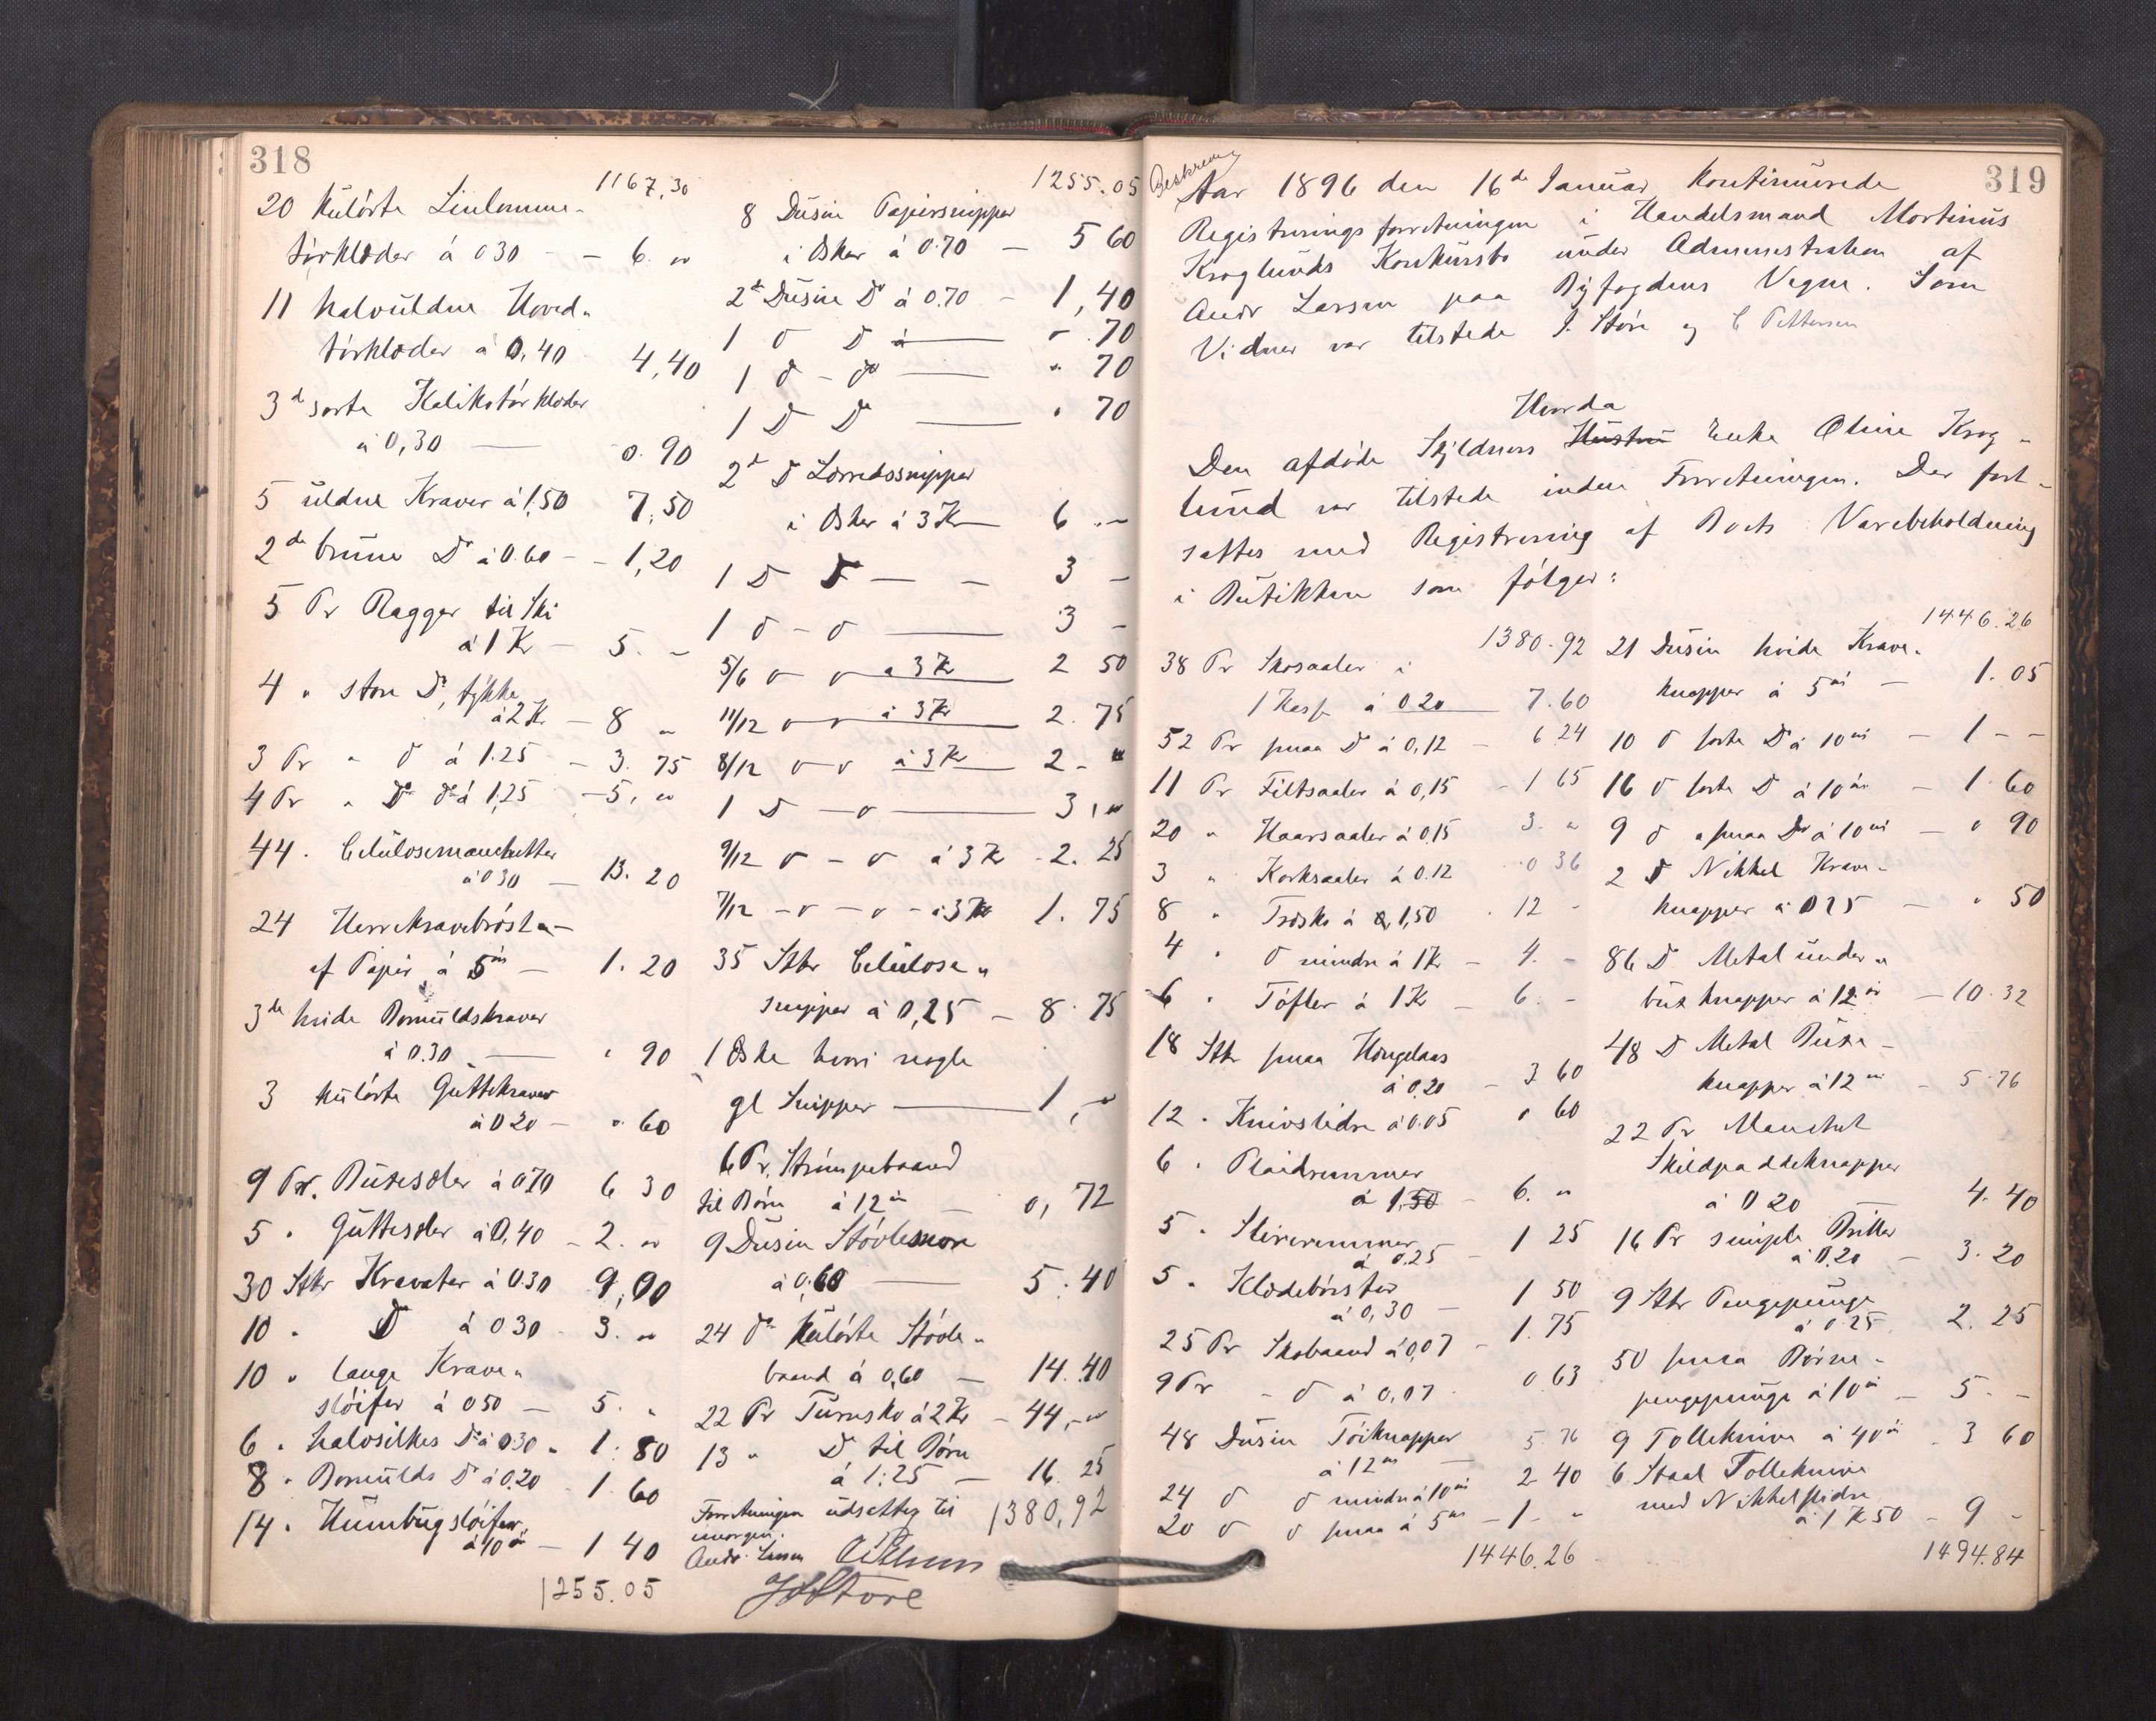 318
1167,30
20 kulørte Linlomme-
tørklæder á 0 30 - - 6. "
11 halvuldne Hoved-
tørklæder á 0,40 4,40
3 d sorte Kaliketørklæder
á 0,30 — 0. 90
5 uldne Kraver á 1.50 7.50
2 de brune Do á 0.60 - - 1,20
5 Pr Ragger til Ski
á 1 Kr - 5. -
4 " store Do, tykke
á 2 Kr. - 8 "
3 Pr " do á 1.25 - 3. 75
4 Pr " Do do á 1,25 - 5, "
44. Celulosemanchetter
á 0 30 — 13. 20
24 Herrekravebryst
af Papir á 5 øre — 1. 20
3 de hvide Bomuldskraver
á 0.30 — " 90
3 kulørte Guttekraver
á 0 20 — " 60
9 Pr. Buxesæler á 0.70 6 30
5 " Guttesæler á 0,40 - 2. "
30 Stkr Kravater á 0.30 9,00
10 " Do á 0 30 3. "
10 " lange Krave-
sløifer á 0 50 — 5. "
6 " halvsilkes Do á 0.30 " 1. 80
8 " Bomulds Do á 0.20 - 1. 60
14 " Humbugsløifer
á 10 ø — 1 40
1255.05
1255.05
8 Dusin Papirsnipper
i Æsker á 0.70 — 5 60
2 d Dusin Do á 0.70 - 1,40
1 do Do á — " 70
1 do - do — " 70
1 Do Do — " 70
2 d Do Lærredssnipper
i Æsker á 3 Kr — 6 . —
1 Do Do — - 3 —
1 do - do — 3 -
5/6 do do á 3 Kr 2 50
11/12 do do á 3 Kr 2. 75
8/12 do do á 3 Kr 2 - "
1 Do - do — 3, "
9/12 do - do á 3 Kr - 2. 25
7/12 - do - do - á 3 Kr 1. 75
35 Stkr Celulose-
snipper á 0,25 — 8. 75
1 Æske hvori nogle
gl Snipper — 1, "
6 Pr. Strømpebaand
til Børn á 12 øre — 0, 72
9 Dusin Støvlesnore
á 0,60 — 5. 40
24 do kulørte Støvle-
baand á 0,60 — 14. 40
22 Pr Turnsko á 2 Kr - 44, "
13 " Do til Børn
á 1.25 — 16. 25
Forretningen udsattes til 1380,92
imorgen.
Andr. Larsen
J Støre
319
Beskreven
Aar 1896 den 16de Januar Kontinuerede
Registreringsforretningen i Handelsmand Martinus
Kroglunds Konkursbo under Administration af
Andr Larsen paa Byfogdens Vegne. Som
Vidner var tilstede J. Støre og C Pettersen
Den afdøde Skyldners Hustru Enke Oline Krog-
lund var tilstede under Forretningen. Der fort-
sattes med Registrering af Boets Varebeholdning
i Butikken som følger:
1380.92
38 Pr Skosaaler i
1 Kasse á 0 20 — 7.60
52 Pr smaa Do á 0,12 - 6 24
11 Pr Filtsaaler á 0,15 - 1 65
20 " Haarsaaler á 0.15 3. "
3 " Korksaaler á 0.12 0 36
8 " Træsko á 1,50 . 12 -
4 " do mindre á 1 Kr - 4. -
6 " Tøfler á 1 Kr — 6. -
18 Stkr smaa Hængelaas
á 0.20 - 3 60
12 " Knivslidre á 0.05 " 60
6 " Plaidremmer
á 1,50 - 6. "
5 " Slireremmer
á 0.25 - 1 25
5 " Klædebørster
á 0,30 — 1 50
25 Pr Skobaand á 0,07 - 1.75
9 Pr - do á 0,07 0 63
48 Dusin Tøiknapper
á 12 øre — 5.76
24 do do mindre á 10 øre 2 40
20 do do smaa á 5 øre - 1 - "
1446.26
1446.26
21 Dusin hvide Krave-
knapper á 5 øre — 1. 05
10 do sorte Do á 10 øre — 1 - -
16 do sorte Do á 10 øre — 1. 60
9 do " smaa Do á 10 øre — " 90
2 Do Nikkel Krave-
knapper á 0 25 — " 50
86 Do Metal under-
bux knapper á 12 øre — 10. 32
48 Do Metal Buxe-
knapper á 12 øre — 5.76
22 Pr Manchet
Skildpaddeknapper
á 0 20 — 4. 40
16 Pr simple Briller
á 0.20 — 3. 20
9 Stkr Pengepunge
á 0.25 2. 25
50 smaa Børne-
pengepunge á 10 ø — 5. -
9 Tolleknive á 40 ø - 3 60
6 Staal Tolleknive
med Nikkelslidre
á 1 K 50 - 9 -
1494.84